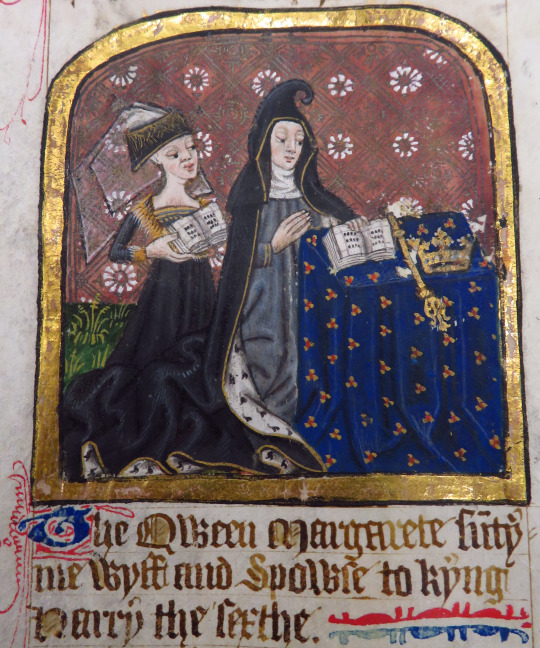 The Qween Margarete sūtȳ
me wyff and spowse to kyng
Harry the sexthe.